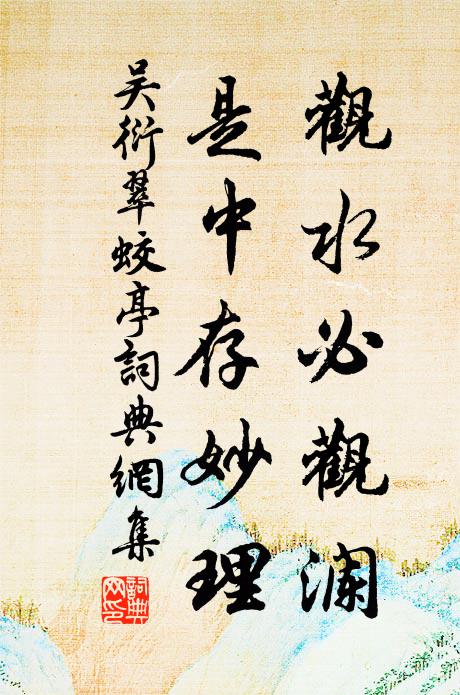 觀水必觀瀾
是中存妙理
吴衍翠蛟亭詞典網集
詞典网印